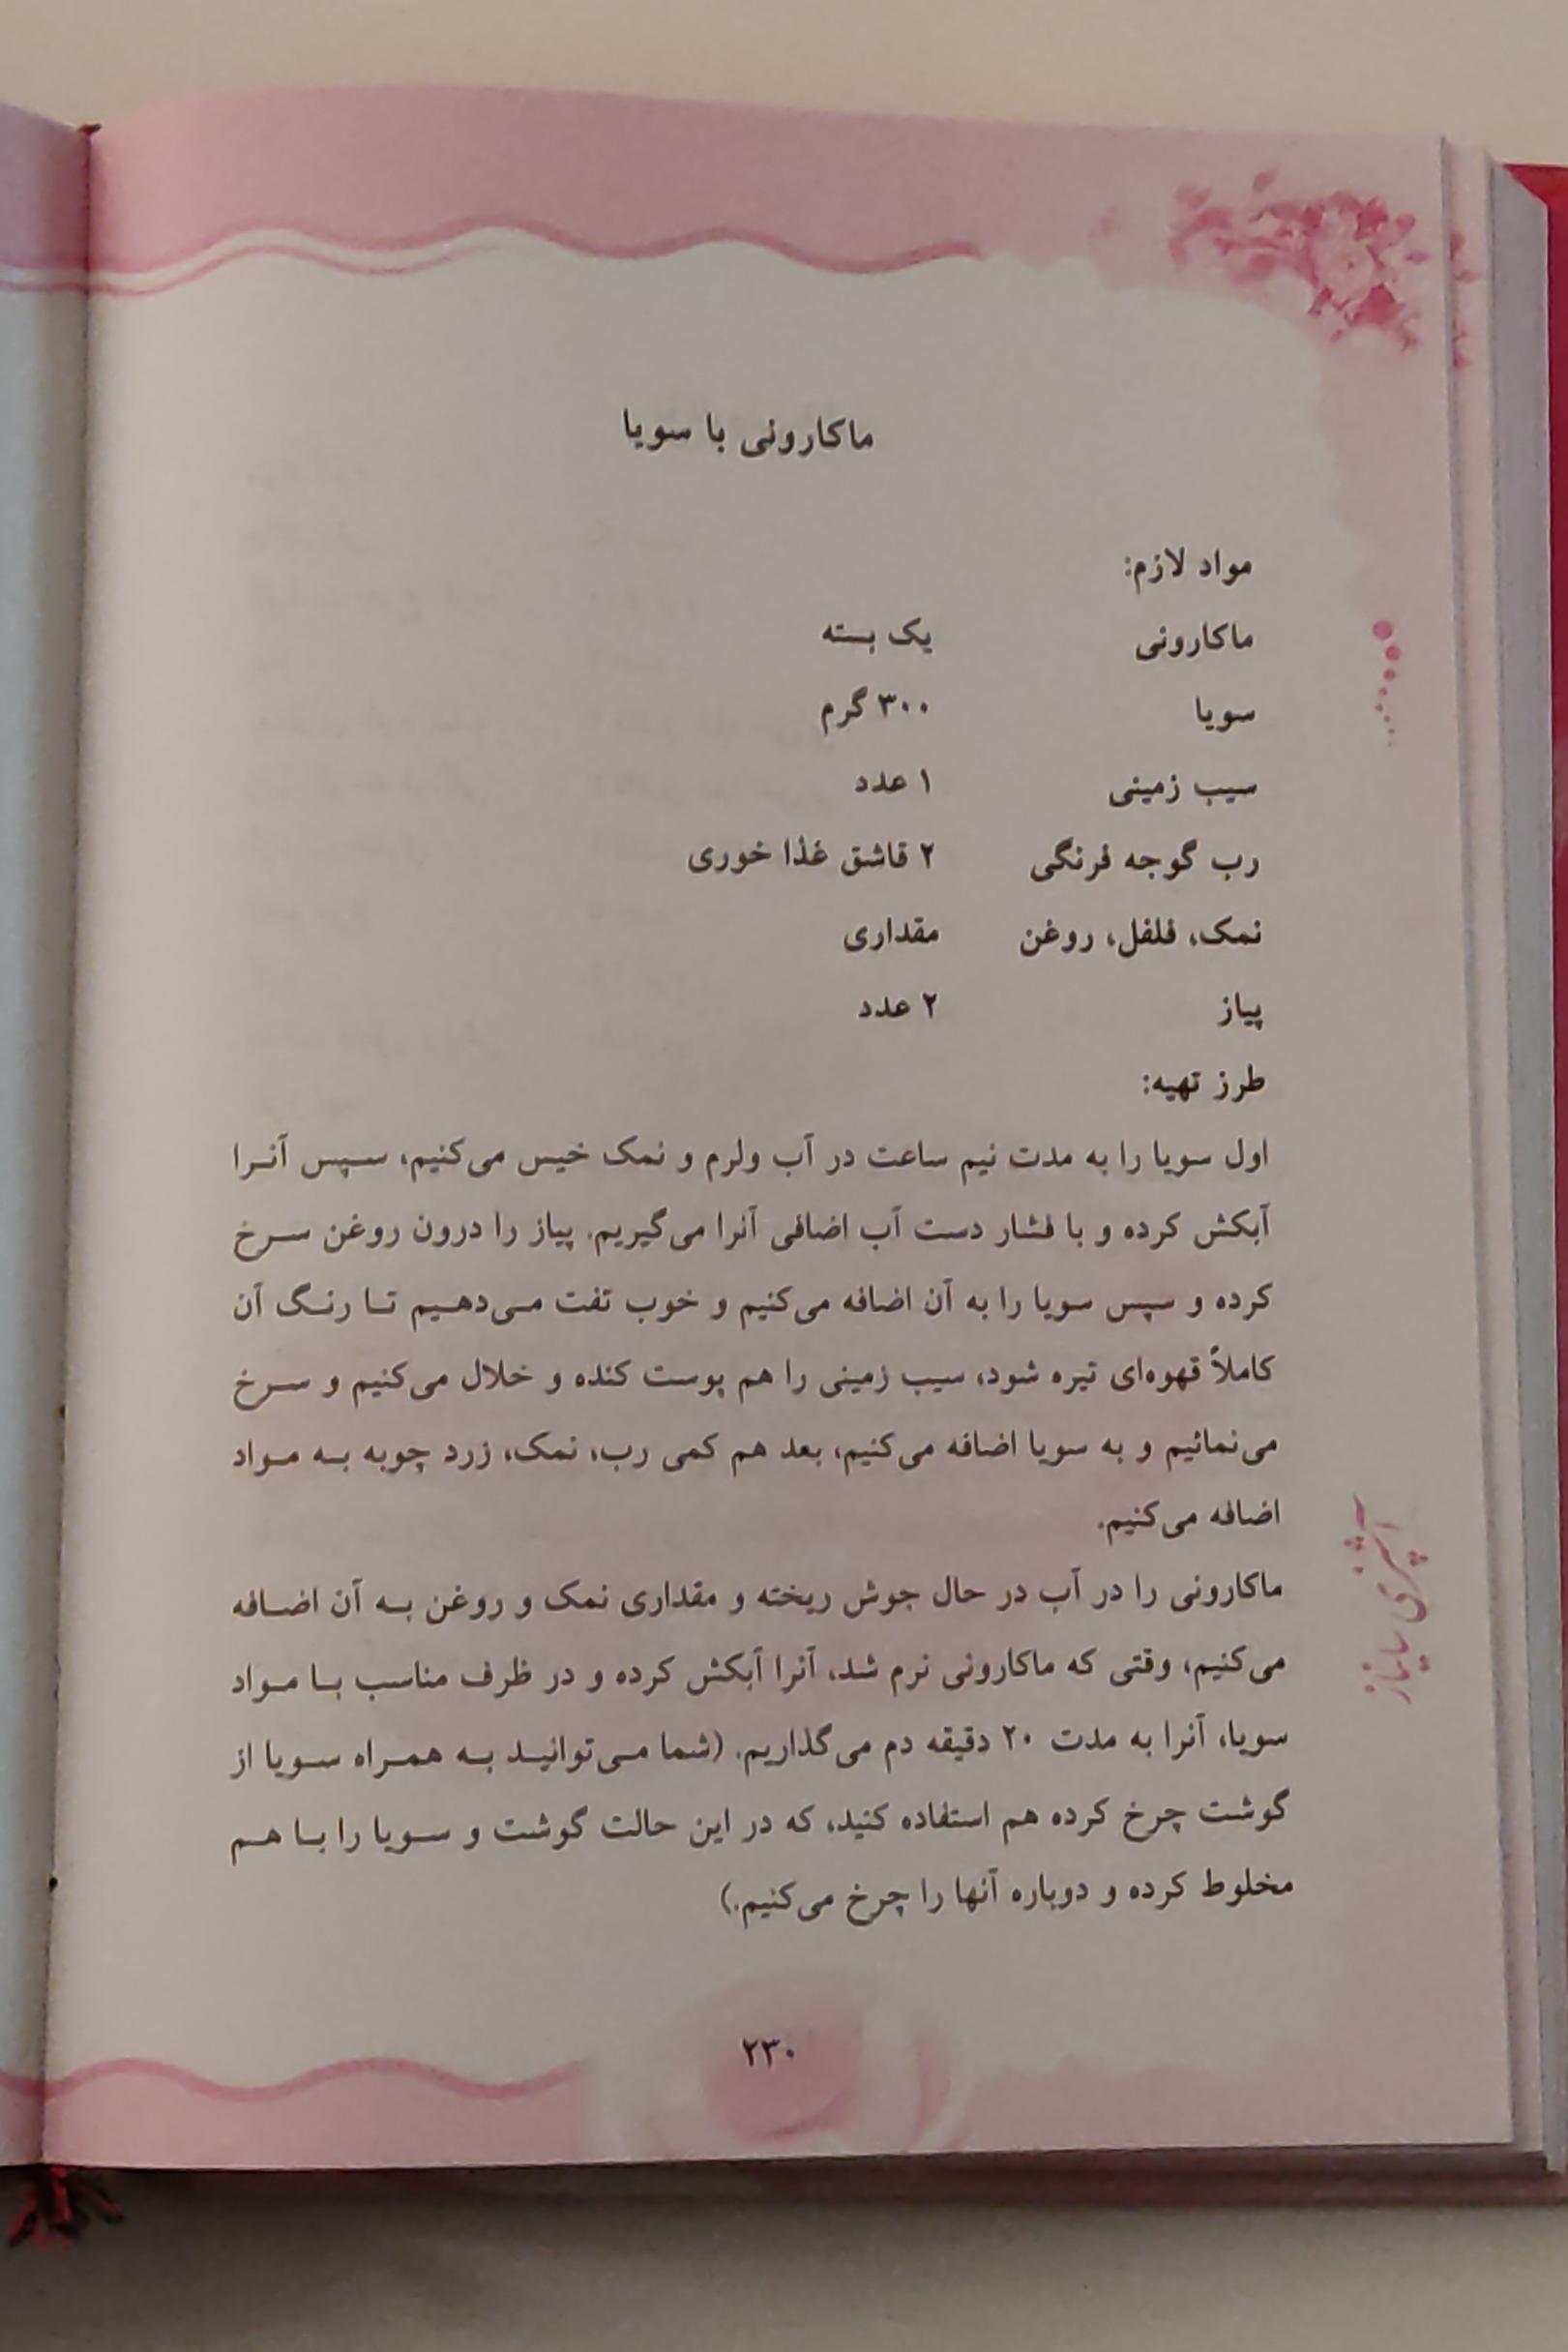 ماکارونی با سویا
مواد لازم:
ماکارونی یک بسته
سویا ۳۰۰ گرم
سیب زمینی ۱ عدد
رب گوجه فرنگی ۲ قاشق غذا خوری
نمک، فلفل، روغن مقداری
پیاز ۲ عدد
طرز تهیه:
اول سویا را به مدت نیم ساعت در آب ولرم و نمک خیس می‌کنیم، سپس آنرا
آبکش کرده و با فشار دست آب اضافی آنرا می‌گیریم. پیاز را درون روغن سرخ
کرده و سپس سویا را به آن اضافه می‌کنیم و خوب تفت می‌دهیم تا رنگ آن
کاملاً قهوه‌ای تیره شود، سیب زمینی را هم پوست کنده و خلال می‌کنیم و سرخ
می‌نمائیم و به سویا اضافه می‌کنیم، بعد هم کمی رب، نمک، زرد چوبه به مواد
اضافه می‌کنیم.
ماکارونی را در آب در حال جوش ریخته و مقداری نمک و روغن به آن اضافه
می‌کنیم، وقتی که ماکارونی نرم شد، آنرا آبکش کرده و در ظرف مناسب با مواد
سویا، آنرا به مدت ۲۰ دقیقه دم می‌گذاریم. (شما می‌توانید به همراه سویا از
گوشت چرخ کرده هم استفاده کنید، که در این حالت گوشت و سویا را با هم
مخلوط کرده و دوباره آنها را چرخ می‌کنیم.)
آشپزی
۲۳۰